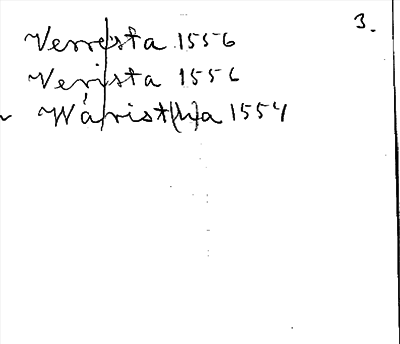 3.
Verresta 1556
Verista 1556
Wárist(h)a 1554